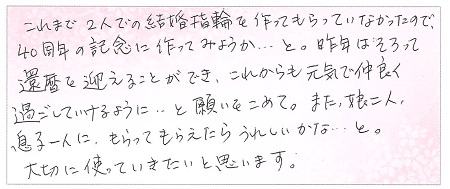 これまで2人での結婚指輪を作ってもらっていなかったので、
40周年の記念に作ってみようか…と。昨年はそろって
還暦を迎えることができ、これからも元気で仲良く
過ごしていけるように…と願いをこめて。また、娘二人、
息子一人に、もらってもらえたらうれしいかな…と。
大切に使っていきたいと思います。